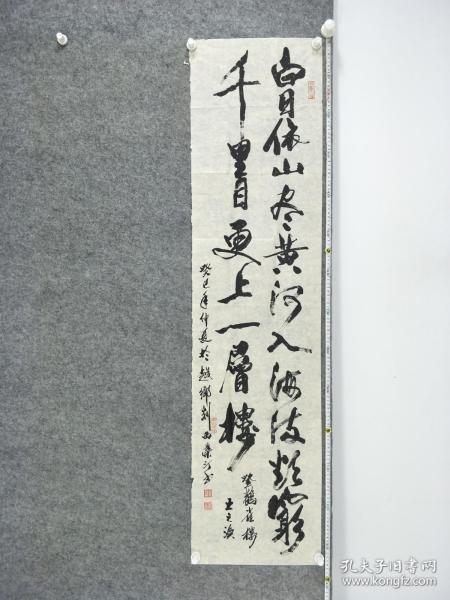 白日依山尽黄河入海流欲窮
千里目更上一層樓
登鹳雀樓
王之涣
癸巳年仲夏於趙鄉
书
孔夫子旧书网
www.kongfz.com